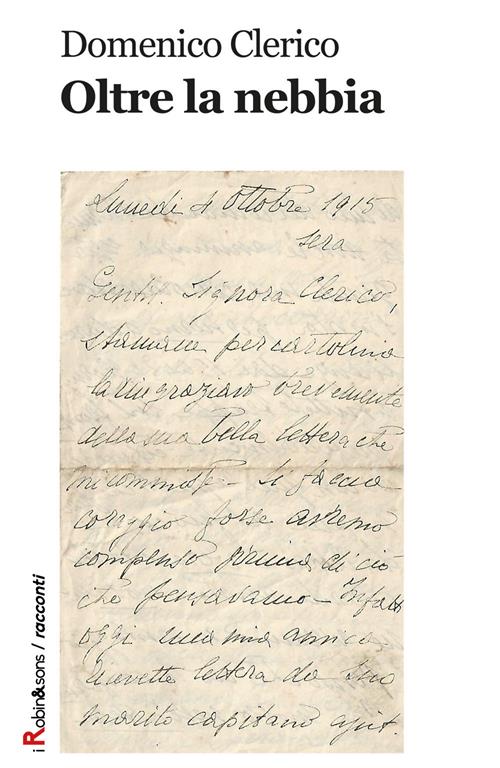 Domenico Clerico
Oltre la nebbia
Lunedì 4 Ottobre 1915
sera
Gentil. Signora Clerico,
stamane per cartolina
la ringraziavo brevemente
della sua bella lettera che
mi commosse - Si faccia
coraggio forse avremo
compenso prima di ciò
che pensavamo - Infatti
oggi una mia amica
ricevette lettera da suo
marito capitano ajut.
i Robin&sons / racconti